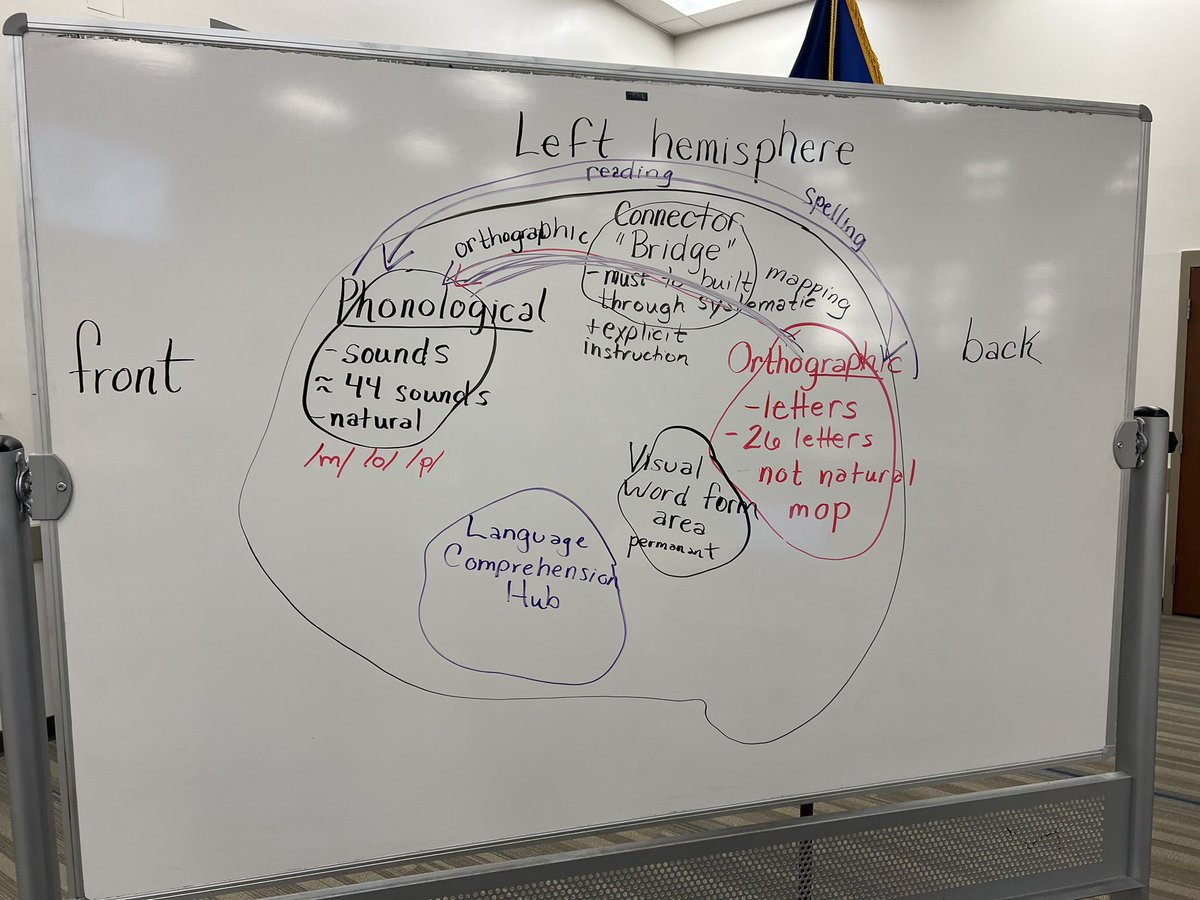 Left hemisphere
reading
spelling
orthographic
Connector
"Bridge"
- must be built
through systematic
+ explicit
instruction
mapping
front
Phonological
- sounds
≈ 44 sounds
- natural
/m/ /o/ /p/
back
Orthographic
- letters
- 26 letters
- not natural
mop
Visual
word form
area
permanant
Language
Comprehension
Hub